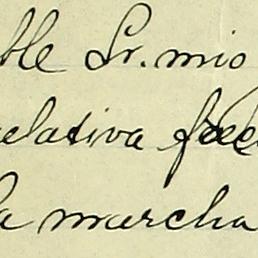 ble Sr. mio
relativa
la marcha